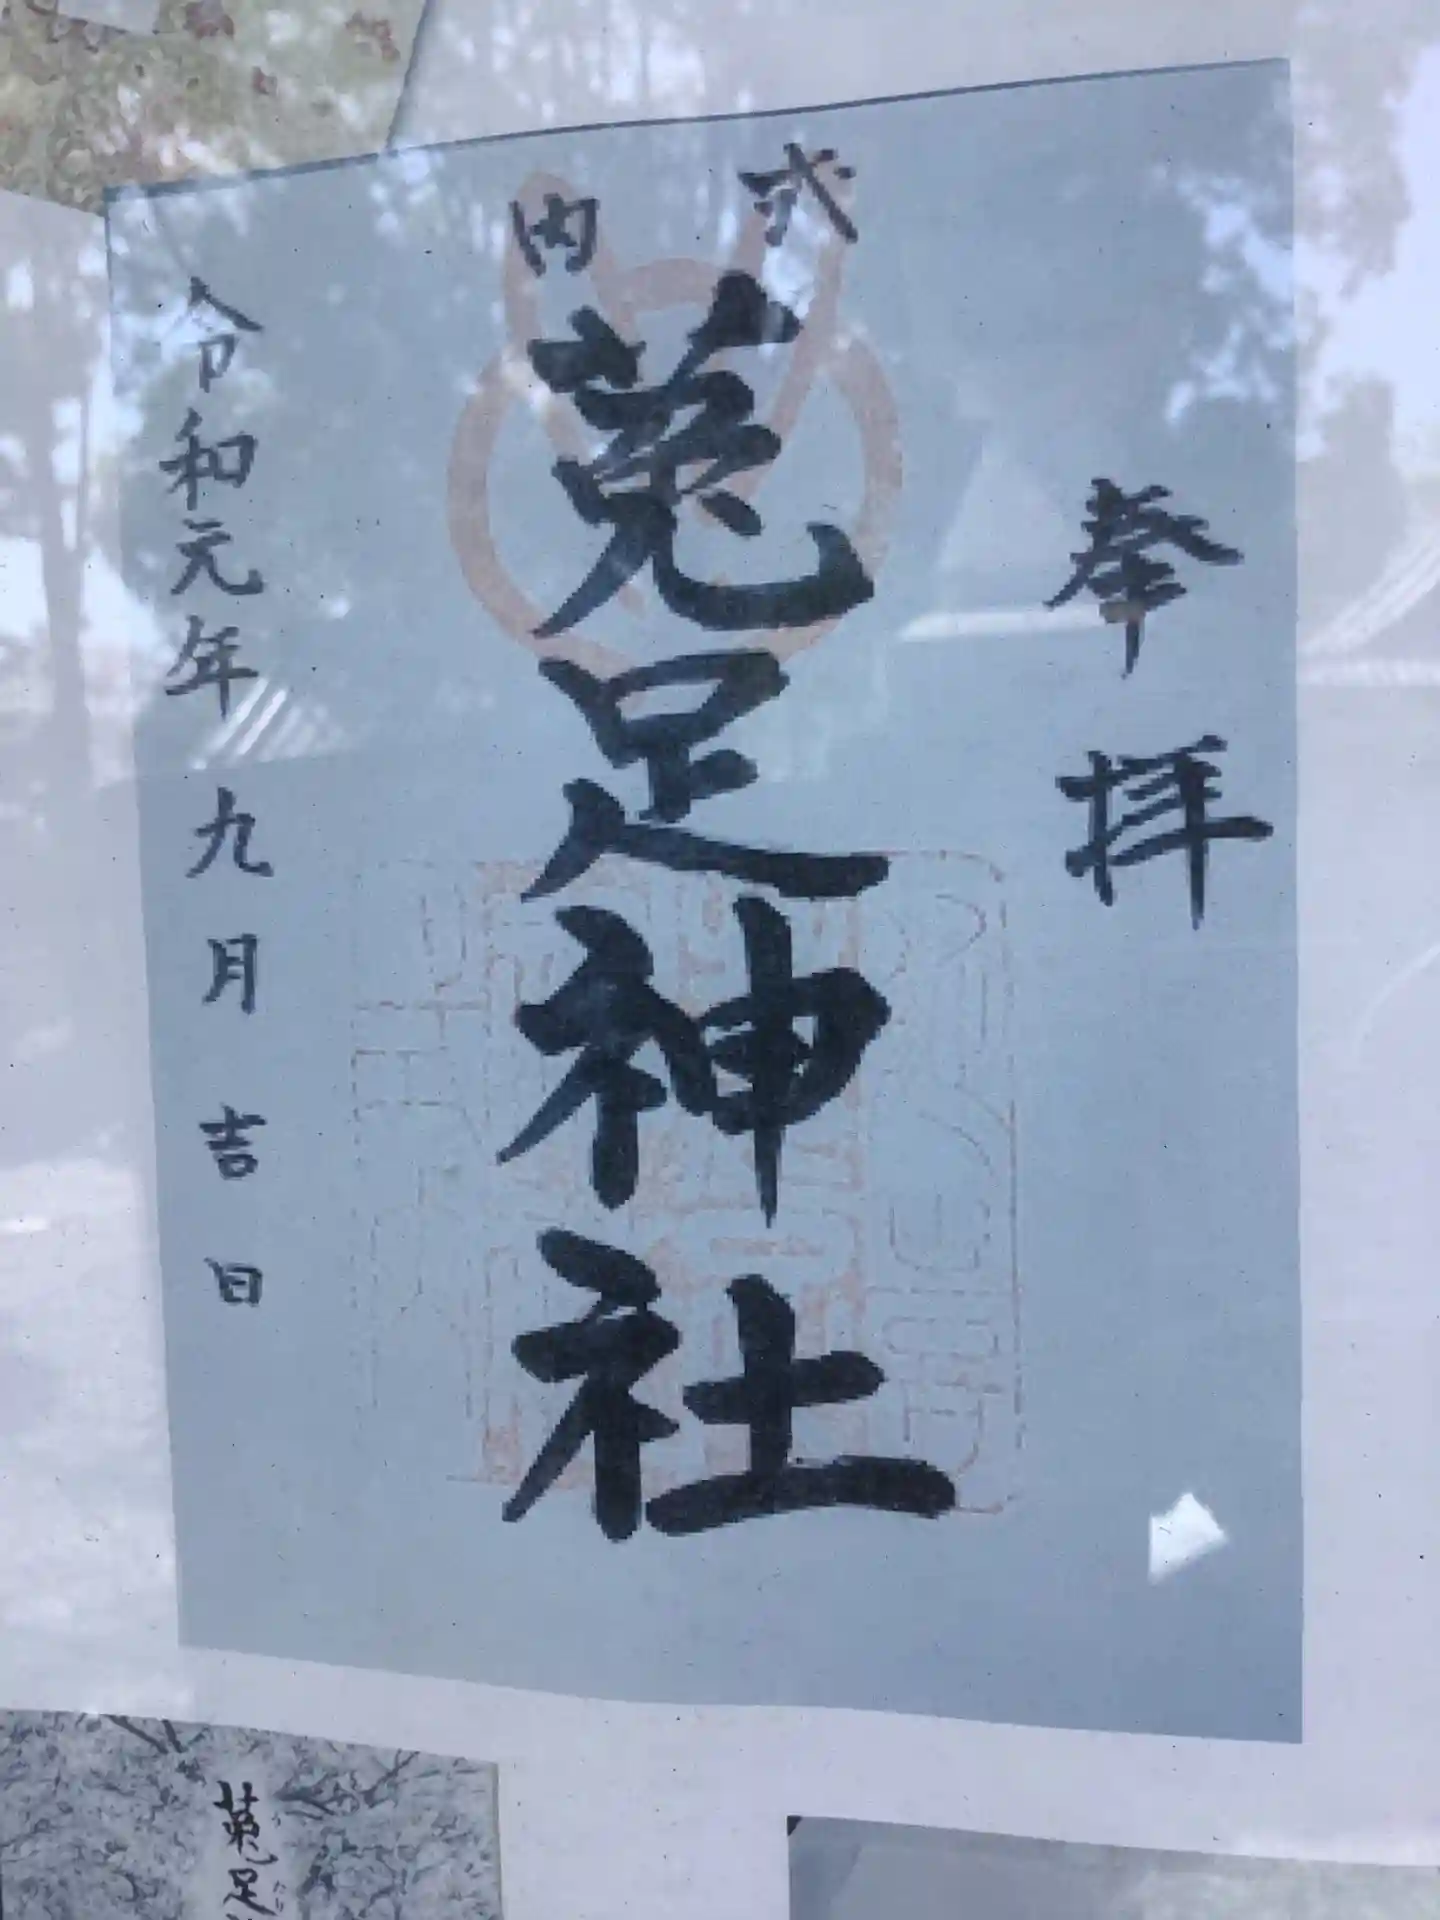 奉拝
式内
菟足神社
令和元年九月吉日
菟足